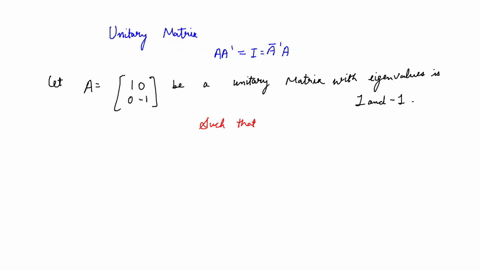 Unitary Matrix
AA' = I = Ā'A
Let A = [1 0 0 -1] be a unitary Matrix with eigenvalues is
1 and -1.
Such that